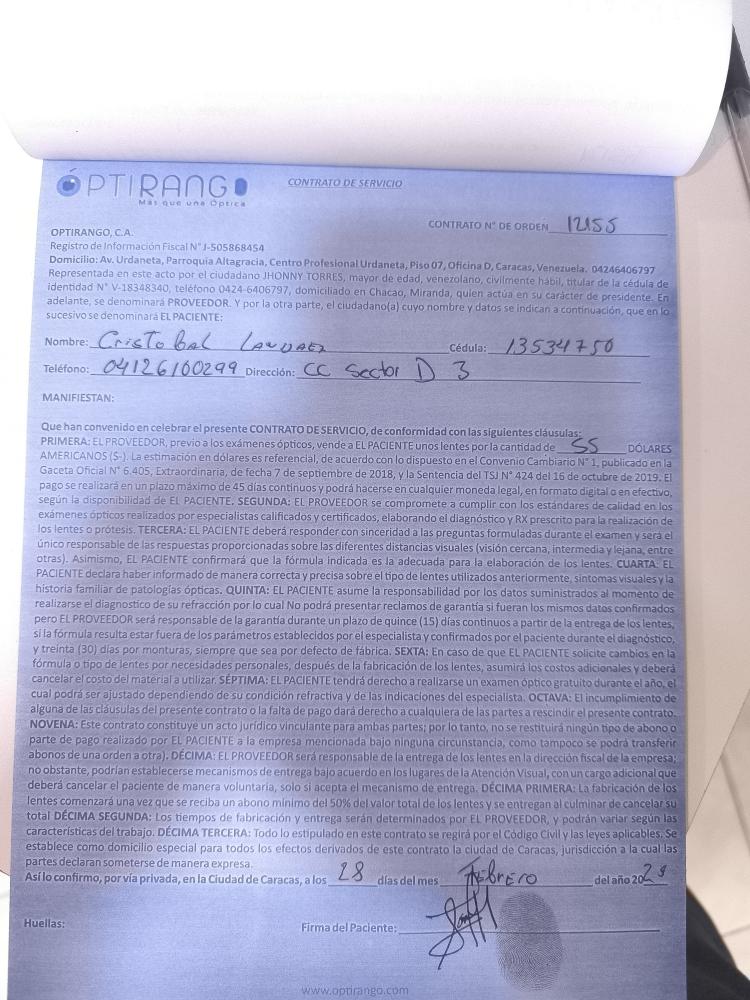 ÓPTIRANGO
Más que una Óptica
CONTRATO DE SERVICIO
CONTRATO N° DE ORDEN 12155
OPTIRANGO, C.A.
Registro de Información Fiscal N° J-505868454
Domicilio: Av. Urdaneta, Parroquia Altagracia, Centro Profesional Urdaneta, Piso 07, Oficina D, Caracas, Venezuela. 04246406797
Representada en este acto por el ciudadano JHONNY TORRES, mayor de edad, venezolano, civilmente hábil, titular de la cédula de
identidad N° V-18348340, teléfono 0424-6406797, domiciliado en Chacao, Miranda, quien actúa en su carácter de presidente. En
adelante, se denominará PROVEEDOR. Y por la otra parte, el ciudadano(a) cuyo nombre y datos se indican a continuación, que en lo
sucesivo se denominará EL PACIENTE:
Nombre: Cristobal Cédula: 13534750
Teléfono: 04126100299 Dirección: CC Sector D 3
MANIFIESTAN:
Que han convenido en celebrar el presente CONTRATO DE SERVICIO, de conformidad con las siguientes cláusulas:
PRIMERA: EL PROVEEDOR, previo a los exámenes ópticos, vende a EL PACIENTE unos lentes por la cantidad de 55 DÓLARES
AMERICANOS ($-). La estimación en dólares es referencial, de acuerdo con lo dispuesto en el Convenio Cambiario N° 1, publicado en la
Gaceta Oficial N° 6.405, Extraordinaria, de fecha 7 de septiembre de 2018, y la Sentencia del TSJ N° 424 del 16 de octubre de 2019. El
pago se realizará en un plazo máximo de 45 días continuos y podrá hacerse en cualquier moneda legal, en formato digital o en efectivo,
según la disponibilidad de EL PACIENTE. SEGUNDA: EL PROVEEDOR se compromete a cumplir con los estándares de calidad en los
exámenes ópticos realizados por especialistas calificados y certificados, elaborando el diagnóstico y RX prescrito para la realización de
los lentes o prótesis. TERCERA: EL PACIENTE deberá responder con sinceridad a las preguntas formuladas durante el examen y será el
único responsable de las respuestas proporcionadas sobre las diferentes distancias visuales (visión cercana, intermedia y lejana, entre
otras). Asimismo, EL PACIENTE confirmará que la fórmula indicada es la adecuada para la elaboración de los lentes. CUARTA: EL
PACIENTE declara haber informado de manera correcta y precisa sobre el tipo de lentes utilizados anteriormente, síntomas visuales y la
historia familiar de patologías ópticas. QUINTA: EL PACIENTE asume la responsabilidad por los datos suministrados al momento de
realizarse el diagnostico de su refracción por lo cual No podrá presentar reclamos de garantía si fueran los mismos datos confirmados
pero EL PROVEEDOR será responsable de la garantía durante un plazo de quince (15) días continuos a partir de la entrega de los lentes,
si la fórmula resulta estar fuera de los parámetros establecidos por el especialista y confirmados por el paciente durante el diagnóstico,
y treinta (30) días por monturas, siempre que sea por defecto de fábrica. SEXTA: En caso de que EL PACIENTE solicite cambios en la
fórmula o tipo de lentes por necesidades personales, después de la fabricación de los lentes, asumirá los costos adicionales y deberá
cancelar el costo del material a utilizar. SÉPTIMA: EL PACIENTE tendrá derecho a realizarse un examen óptico gratuito durante el año, el
cual podrá ser ajustado dependiendo de su condición refractiva y de las indicaciones del especialista. OCTAVA: El incumplimiento de
alguna de las cláusulas del presente contrato o la falta de pago dará derecho a cualquiera de las partes a rescindir el presente contrato.
NOVENA: Este contrato constituye un acto jurídico vinculante para ambas partes; por lo tanto, no se restituirá ningún tipo de abono o
parte de pago realizado por EL PACIENTE a la empresa mencionada bajo ninguna circunstancia, como tampoco se podrá transferir
abonos de una orden a otra). DÉCIMA: EL PROVEEDOR será responsable de la entrega de los lentes en la dirección fiscal de la empresa;
no obstante, podrían establecerse mecanismos de entrega bajo acuerdo en los lugares de la Atención Visual, con un cargo adicional que
deberá cancelar el paciente de manera voluntaria, solo si acepta el mecanismo de entrega. DÉCIMA PRIMERA: La fabricación de los
lentes comenzará una vez que se reciba un abono mínimo del 50% del valor total de los lentes y se entregan al culminar de cancelar su
total DÉCIMA SEGUNDA: Los tiempos de fabricación y entrega serán determinados por EL PROVEEDOR, y podrán variar según las
características del trabajo. DÉCIMA TERCERA: Todo lo estipulado en este contrato se regirá por el Código Civil y las leyes aplicables. Se
establece como domicilio especial para todos los efectos derivados de este contrato la ciudad de Caracas, jurisdicción a la cual las
partes declaran someterse de manera expresa.
Así lo confirmo, por vía privada, en la Ciudad de Caracas, a los 28 días del mes Febrero del año 20
Huellas:
Firma del Paciente:
www.optirango.com